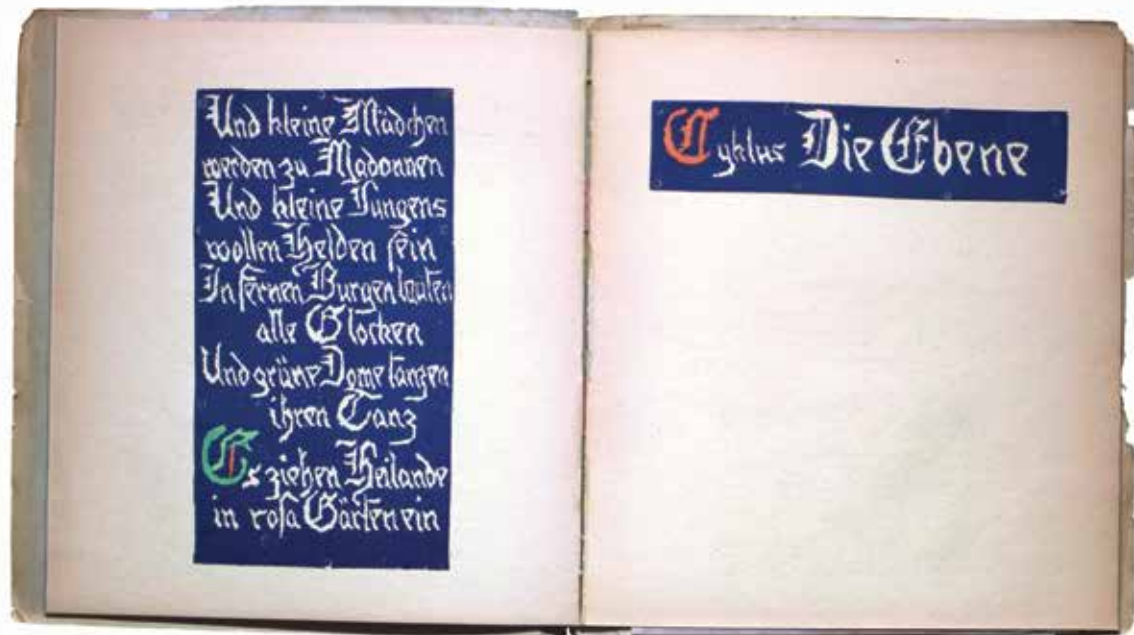 Und kleine Mädchen
werden zu Madonnen
Und kleine Jungens
wollen Helden sein
In fernen Burgen läuten
alle Glocken
Und grüne Dome tanzen
ihren Tanz
Es ziehen Heilande
in rosa Gärten ein
Cyklus Die Ebene